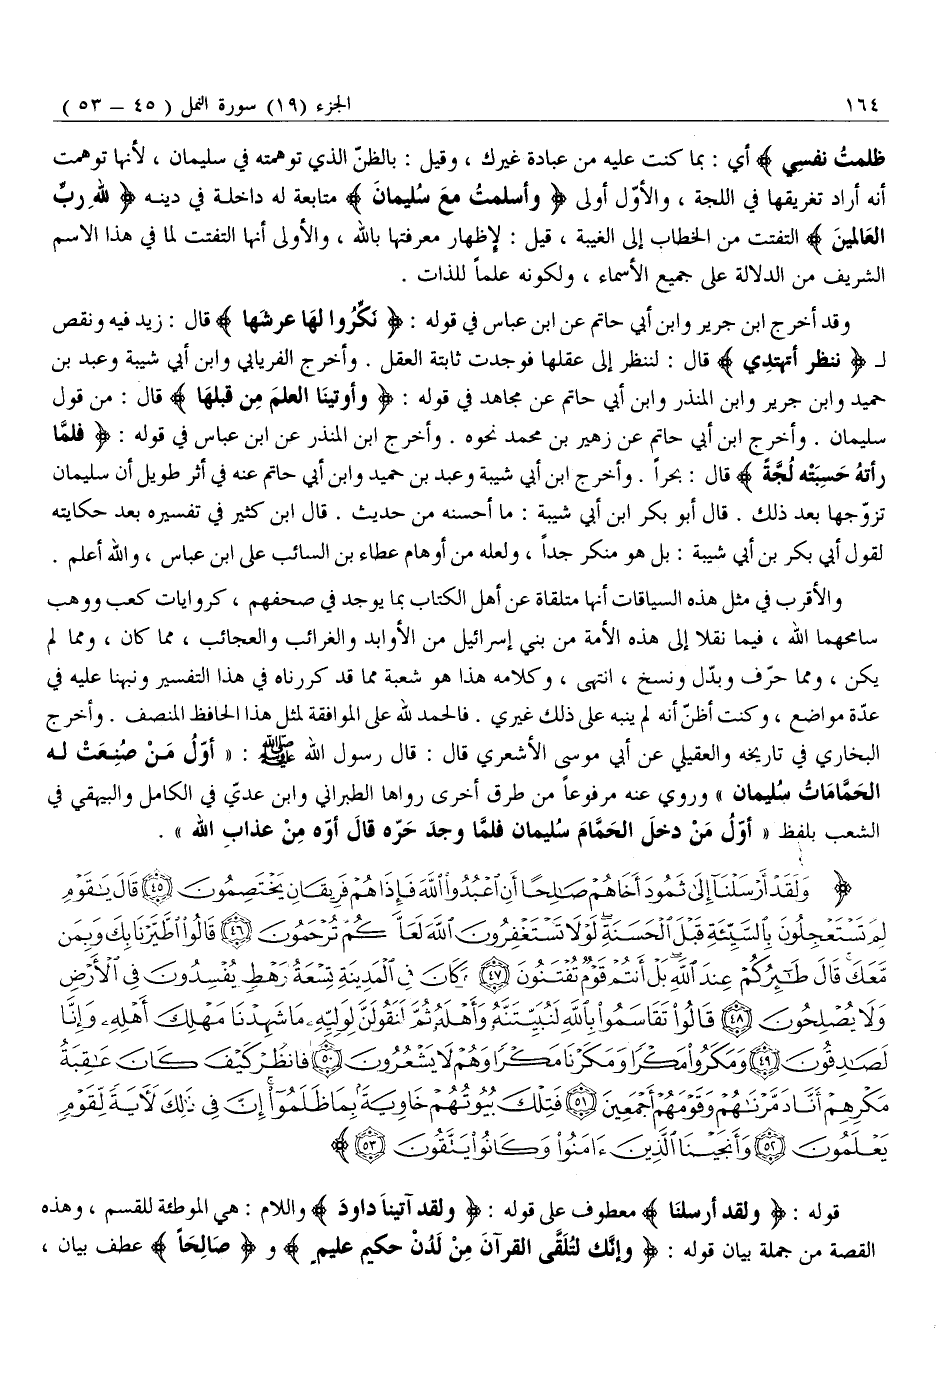 ١٦٤ الجزء (١٩) سورة النمل ( ٤٥ – ٥٣ )
ظلمتُ نفسِي ﴾ أي : بما كنت عليه من عبادة غيرك ، وقيل : بالظنّ الذي توهمته في سليمان ، لأنها توهمت
أنه أراد تغريقها في اللجة ، والأوّل أولى ﴿ وأسلمتُ معَ سُليمانَ ﴾ متابعة له داخلة في دينه ﴿ للهِ ربِّ
العَالمينَ ﴾ التفتت من الخطاب إلى الغيبة ، قيل : لإظهار معرفتها بالله ، والأولى أنها التفتت لما في هذا الاسم
الشريف من الدلالة على جميع الأسماء ، ولكونه علماً للذات .
وقد أخرج ابن جرير وابن أبي حاتم عن ابن عباس في قوله : ﴿ نَكِّرُوا لهَا عرشَها ﴾ قال : زيد فيه ونقص
لـ ﴿ ننظر أتهتدِي ﴾ قال : لننظر إلى عقلها فوجدت ثابتة العقل . وأخرج الفريابي وابن أبي شيبة وعبد بن
حميد وابن جرير وابن المنذر وابن أبي حاتم عن مجاهد في قوله : ﴿ وأوتينَا العلمَ مِن قبلهَا ﴾ قال : من قول
سليمان . وأخرج ابن أبي حاتم عن زهير بن محمد نحوه . وأخرج ابن المنذر عن ابن عباس في قوله : ﴿ فلمَّا
رأتهُ حَسِبَتْه لُجَّةً ﴾ قال : بحراً . وأخرج ابن أبي شيبة وعبد بن حميد وابن أبي حاتم عنه في أثر طويل أن سليمان
تزوّجها بعد ذلك . قال أبو بكر ابن أبي شيبة : ما أحسنه من حديث . قال ابن كثير في تفسيره بعد حكايته
لقول أبي بكر بن أبي شيبة : بل هو منكر جداً ، ولعله من أوهام عطاء بن السائب على ابن عباس ، والله أعلم .
والأقرب في مثل هذه السياقات أنها متلقاة عن أهل الكتاب بما يوجد في صحفهم ، كروايات كعب ووهب
سامحهما الله ، فيما نقلا إلى هذه الأمة من بني إسرائيل من الأوابد والغرائب والعجائب ، مما كان ، ومما لم
يكن ، ومما حرّف وبدّل ونسخ ، انتهى ، وكلامه هذا هو شعبة مما قد كررناه في هذا التفسير ونبهنا عليه في
عدّة مواضع ، وكنت أظنّ أنه لم ينبه على ذلك غيري . فالحمد لله على الموافقة لمثل هذا الحافظ المنصف . وأخرج
البخاري في تاريخه والعقيلي عن أبي موسى الأشعري قال : قال رسول الله ﷺ : « أوّلُ مَنْ صُنِعَتْ له
الحَمَّامَاتُ سُليمان » وروي عنه مرفوعاً من طرق أخرى رواها الطبراني وابن عديّ في الكامل والبيهقي في
الشعب بلفظ « أوّلُ مَنْ دخلَ الحَمَّامَ سُليمان فلمَّا وجدَ حَرّه قالَ أوّه مِنْ عذابِ الله » .
﴿ وَلَقَدْ أَرْسَلْنَا إِلَىٰ ثَمُودَ أَخَاهُمْ صَالِحًا أَنِ اعْبُدُوا اللَّهَ فَإِذَا هُمْ فَرِيقَانِ يَخْتَصِمُونَ ﴿٤٥﴾ قَالَ يَاقَوْمِ
لِمَ تَسْتَعْجِلُونَ بِالسَّيِّئَةِ قَبْلَ الْحَسَنَةِ لَوْلَا تَسْتَغْفِرُونَ اللَّهَ لَعَلَّكُمْ تُرْحَمُونَ ﴿٤٦﴾ قَالُوا اطَّيَّرْنَا بِكَ وَبِمَن
مَّعَكَ قَالَ طَائِرُكُمْ عِندَ اللَّهِ بَلْ أَنتُمْ قَوْمٌ تُفْتَنُونَ ﴿٤٧﴾ وَكَانَ فِي الْمَدِينَةِ تِسْعَةُ رَهْطٍ يُفْسِدُونَ فِي الْأَرْضِ
وَلَا يُصْلِحُونَ ﴿٤٨﴾ قَالُوا تَقَاسَمُوا بِاللَّهِ لَنُبَيِّتَنَّهُ وَأَهْلَهُ ثُمَّ لَنَقُولَنَّ لِوَلِيِّهِ مَا شَهِدْنَا مَهْلِكَ أَهْلِهِ وَإِنَّا
لَصَادِقُونَ ﴿٤٩﴾ وَمَكَرُوا مَكْرًا وَمَكَرْنَا مَكْرًا وَهُمْ لَا يَشْعُرُونَ ﴿٥٠﴾ فَانظُرْ كَيْفَ كَانَ عَاقِبَةُ
مَكْرِهِمْ أَنَّا دَمَّرْنَاهُمْ وَقَوْمَهُمْ أَجْمَعِينَ ﴿٥١﴾ فَتِلْكَ بُيُوتُهُمْ خَاوِيَةً بِمَا ظَلَمُوا إِنَّ فِي ذَٰلِكَ لَآيَةً لِّقَوْمٍ
يَعْلَمُونَ ﴿٥٢﴾ وَأَنجَيْنَا الَّذِينَ ءَامَنُوا وَكَانُوا يَتَّقُونَ ﴿٥٣﴾ ﴾
قوله : ﴿ ولقد أرسلنَا ﴾ معطوف على قوله : ﴿ ولقد آتينَا داودَ ﴾ واللام : هي الموطئة للقسم ، وهذه
القصة من جملة بيان قوله : ﴿ وإنَّك لتُلَقَّى القرآنَ مِنْ لَدُنْ حكيمٍ عليمٍ ﴾ و ﴿ صَالِحَاً ﴾ عطف بيان ،